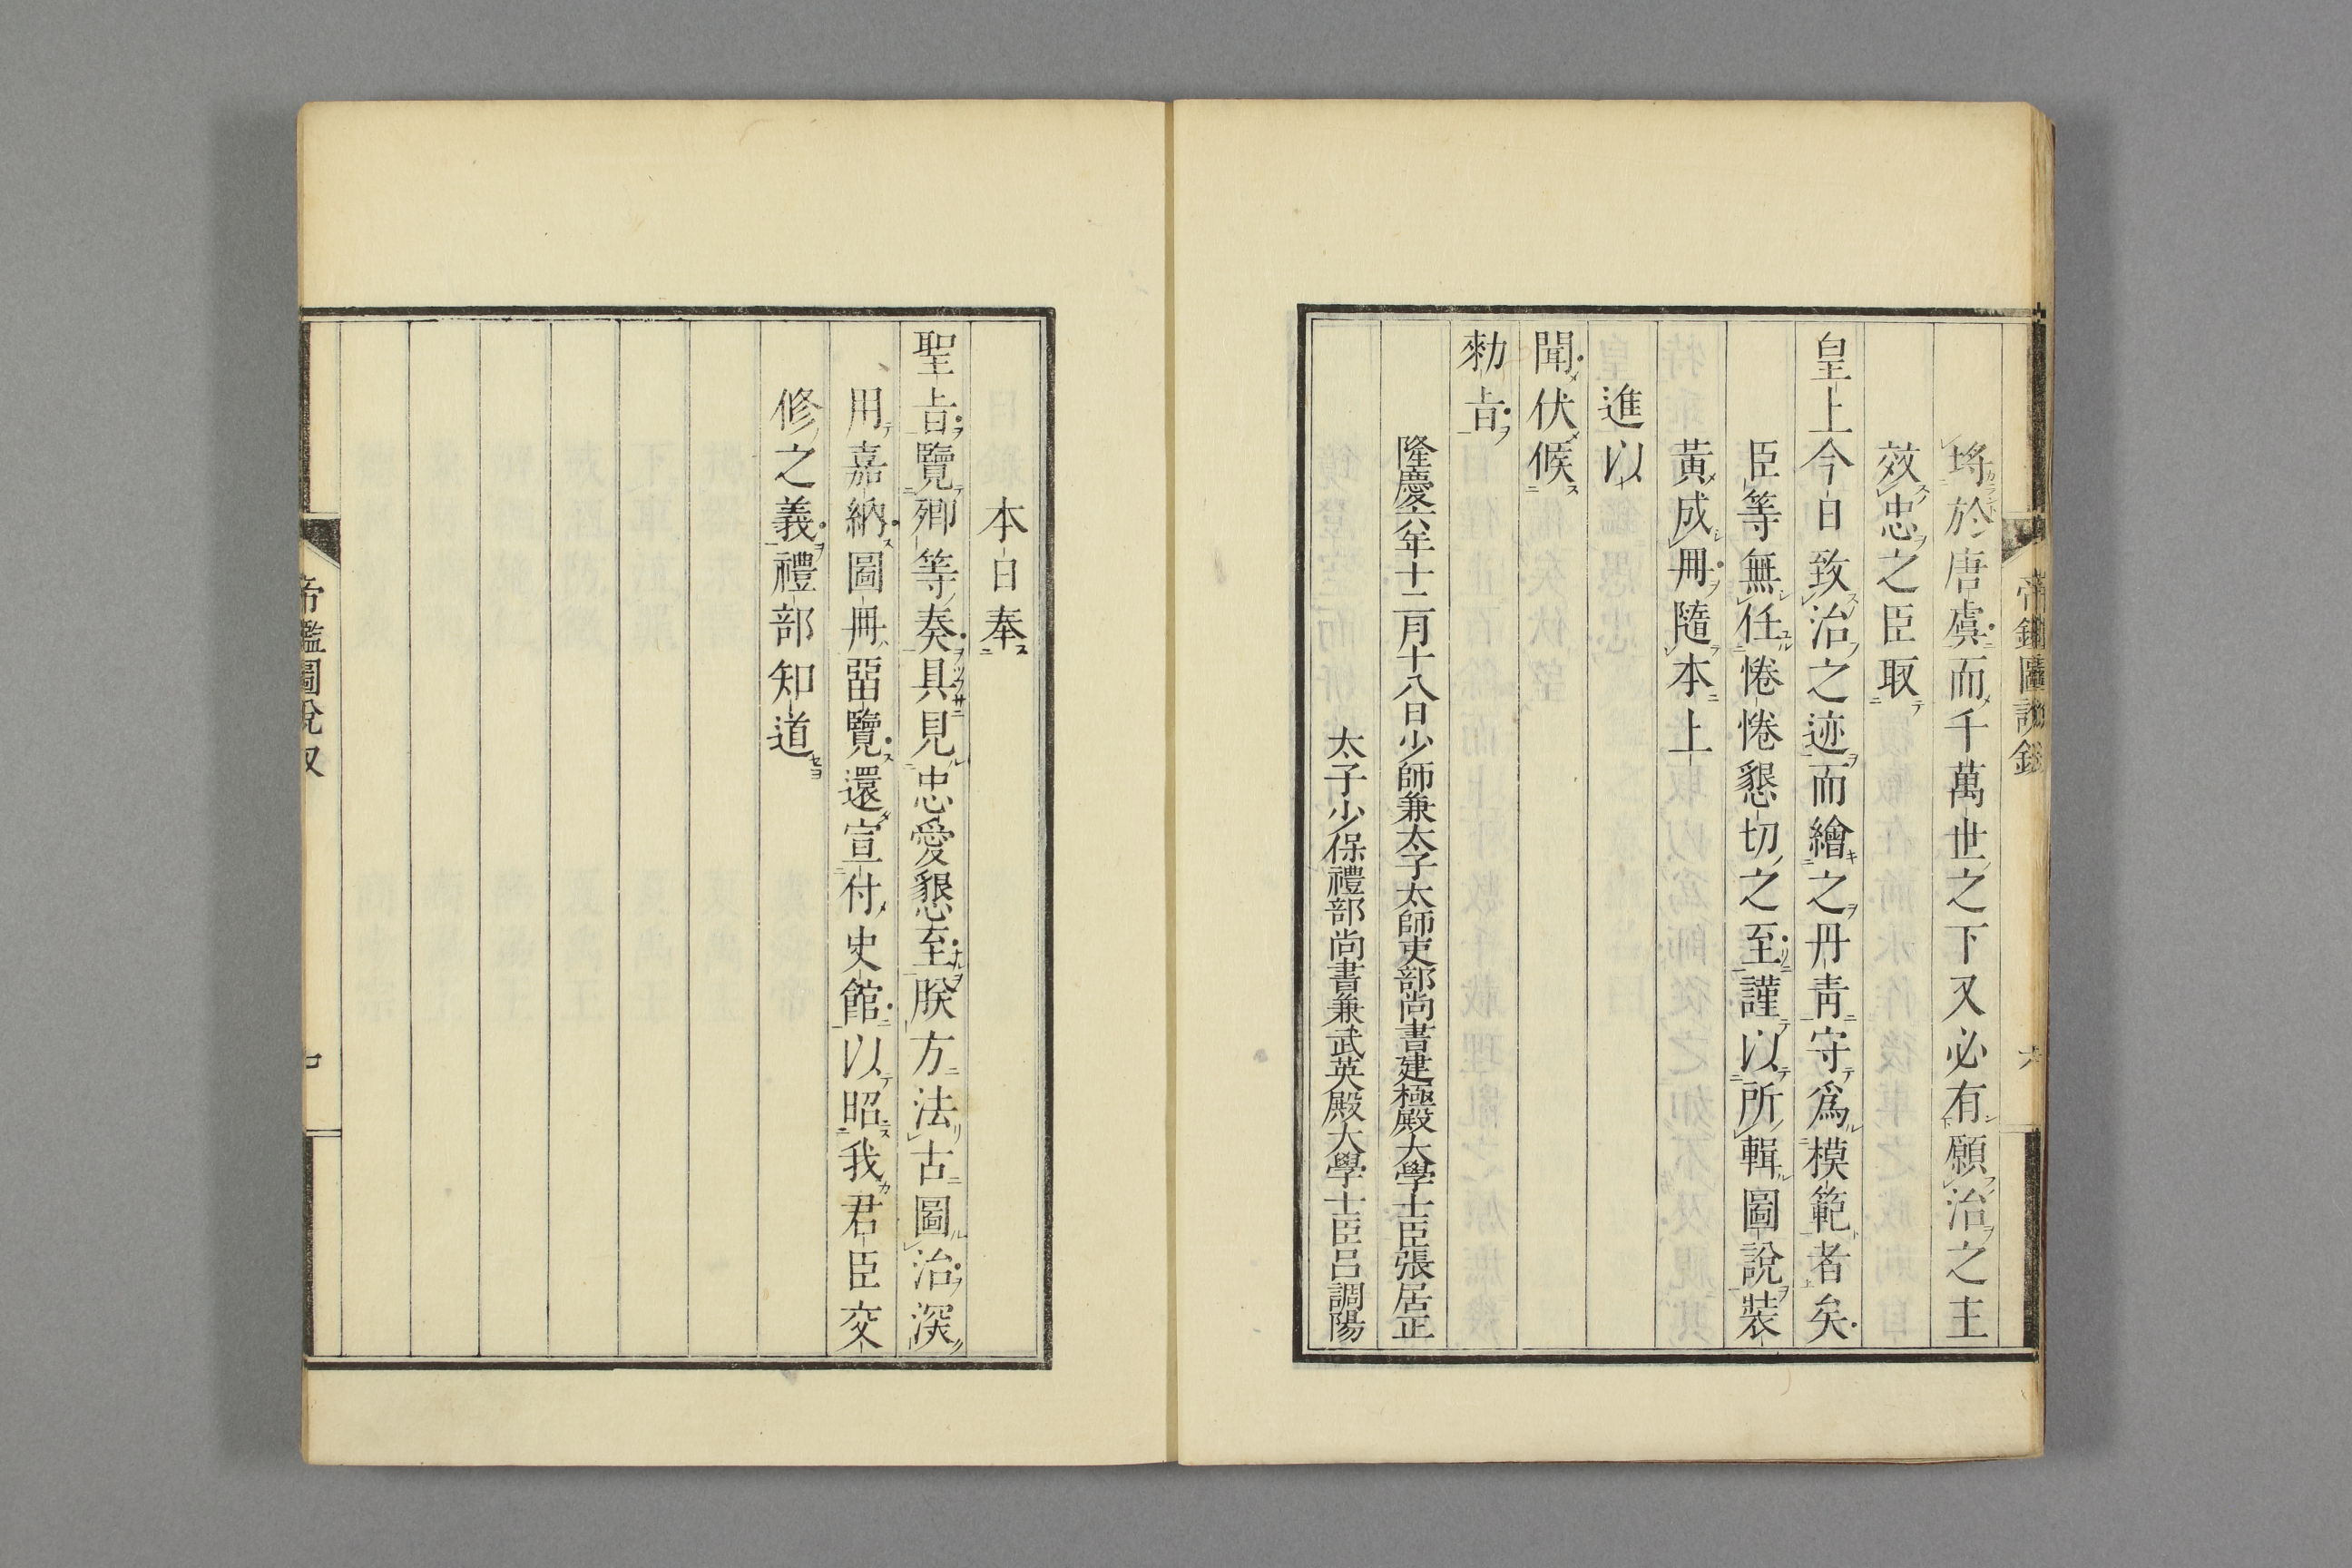 將於唐虞而千萬世之下又必有願治之主
效忠之臣取
皇上今日致治之迹而繪之丹靑守爲模範者矣
臣等無任惓惓懇切之至謹以所輯圖說裝
黃成冊隨本上
進以
聞伏候
勅旨
隆慶六年十二月十八日少師兼太子太師吏部尚書建極殿大學士臣張居正
太子少保禮部尚書兼武英殿大學士臣呂調陽
本日奉
聖旨覽卿等奏具見忠愛懇至朕方法古圖治深
用嘉納圖冊留覽還宣付史館以昭我君臣交
修之義禮部知道
帝鑑圖說叙